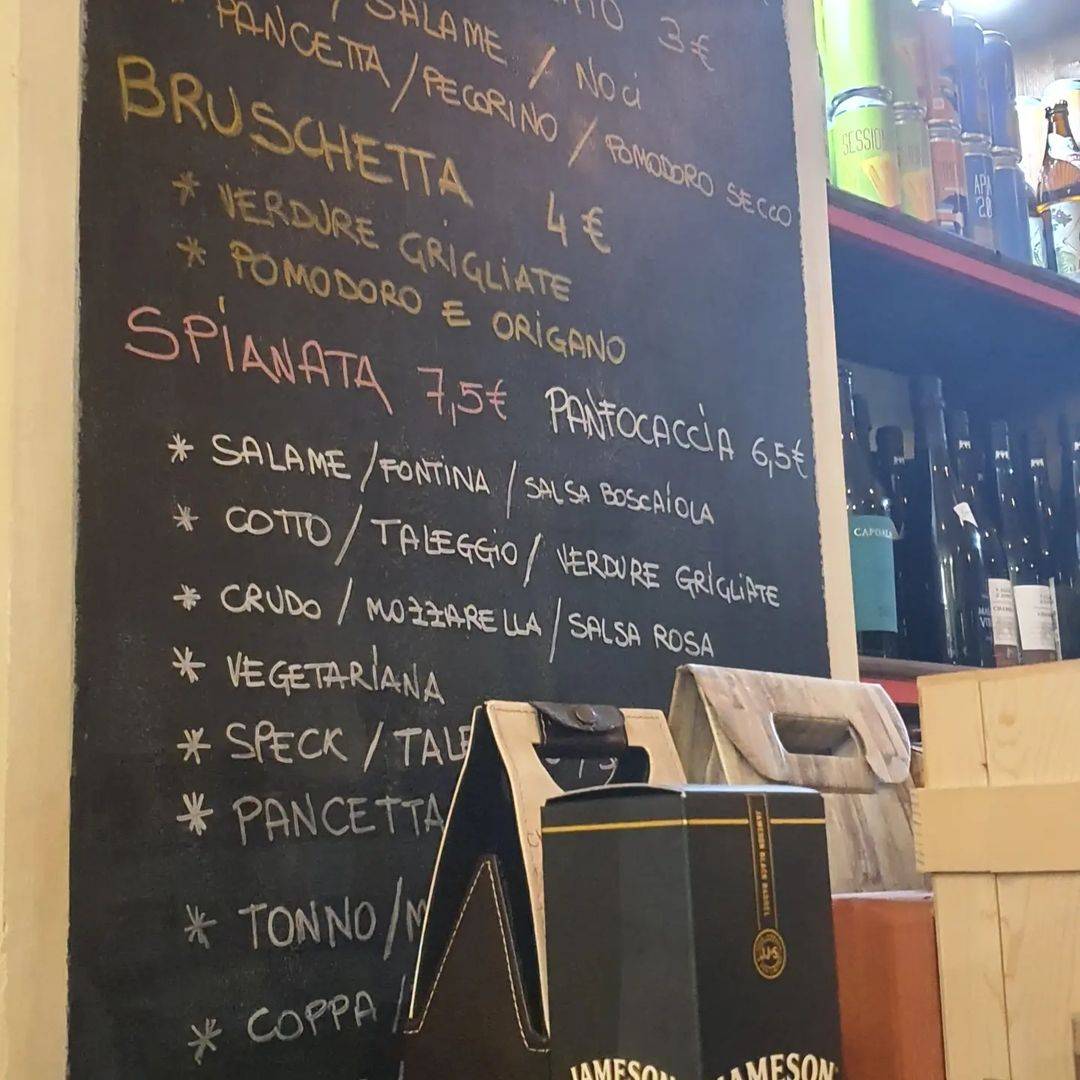 3€
/ SALAME / NOCI
PANCETTA / PECORINO / POMODORO SECCO
BRUSCHETTA 4 €
* VERDURE GRIGLIATE
* POMODORO E ORIGANO
SPIANATA 7,5€ PANFOCACCIA 6,5€
* SALAME / FONTINA / SALSA BOSCAIOLA
* COTTO / TALEGGIO / VERDURE GRIGLIATE
* CRUDO / MOZZARELLA / SALSA ROSA
* VEGETARIANA
* SPECK /
* PANCETTA
* TONNO /
* COPPA
SESSIO
APA
JAMESON BLACK BARREL
JJ&S
JAMESON
JAMESON